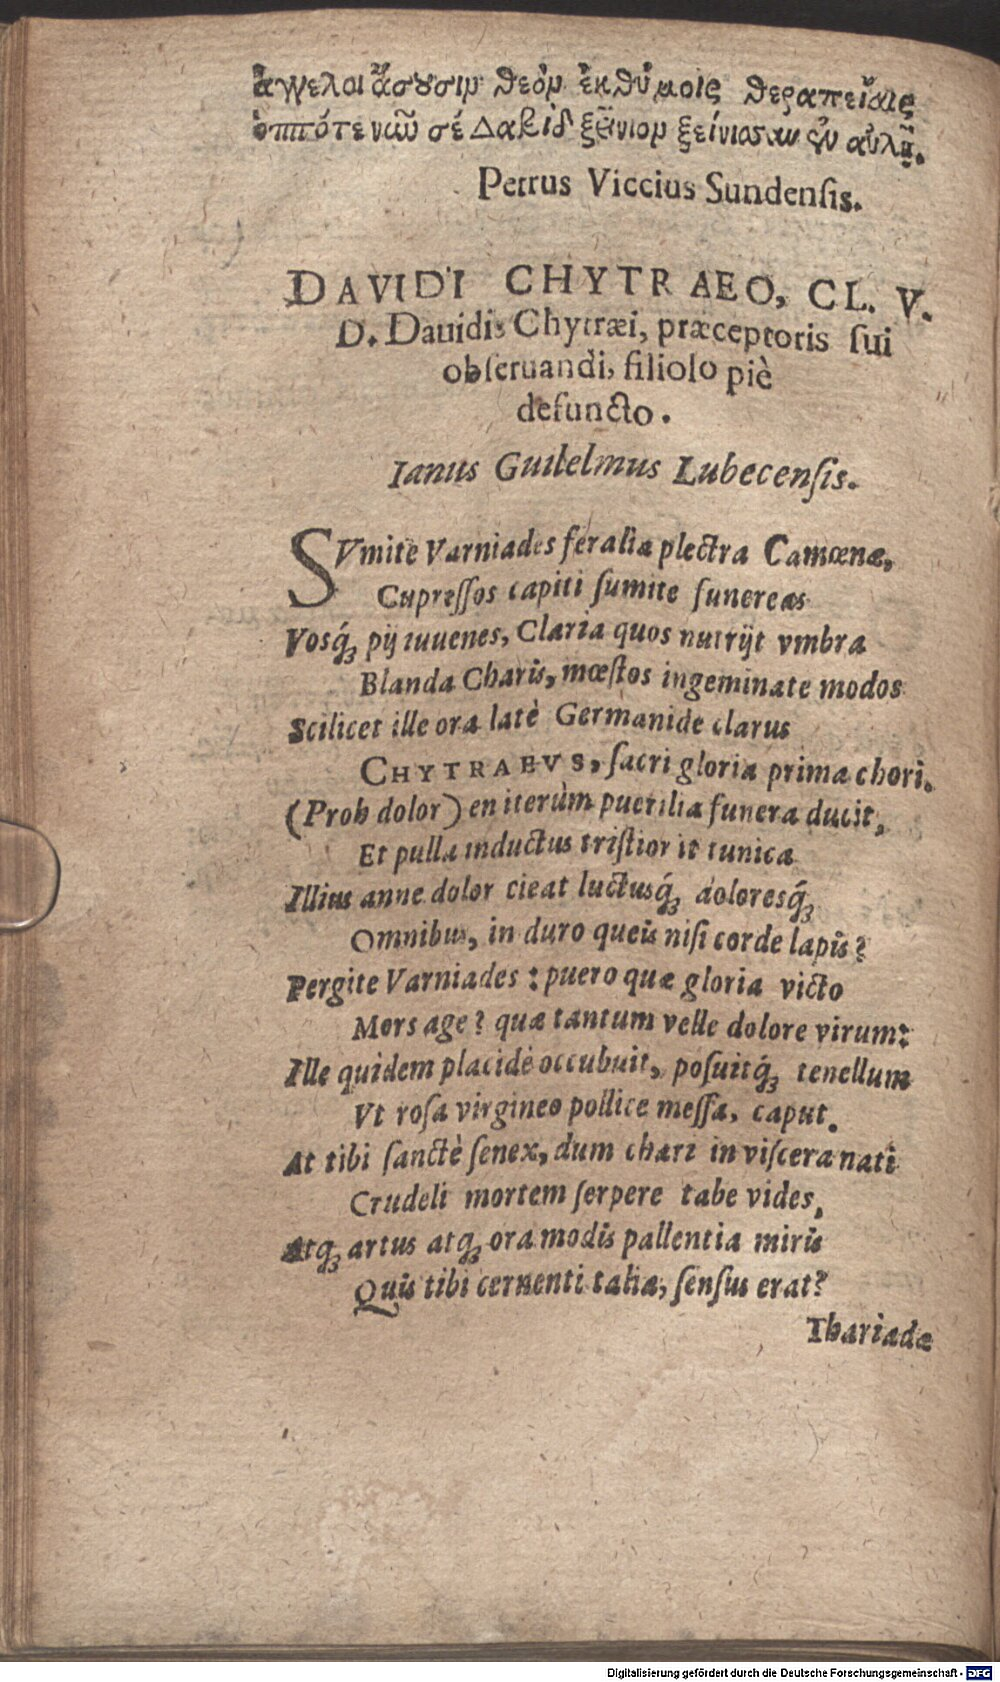 ἄγγελοι ᾄσουσιν θεὸν ἐκθύμοις θεραπείαις
ὁππότε νῶν σέ Δαβὶδ ξείνιον ξείνισαν ἐν αὐλῇ.
Petrus Viccius Sundensis.
DAVIDI CHYTRAEO, CL. V.
D. Dauidis Chytræi, præceptoris sui
obseruandi, filiolo piè
defuncto.
Ianus Guilelmus Lubecensis.
SVmite Varniades feralia plectra Camœnæ,
Cupressos capiti sumite funereas
Vosq́; pij iuuenes, Claria quos nutrijt vmbra
Blanda Charis, mœstos ingeminate modos
Scilicet ille ora latè Germanide clarus
CHYTRAEVS, sacri gloria prima chori.
(Proh dolor) en iterùm puerilia funera ducit,
Et pulla inductus tristior it tunica
Illius anne dolor cieat luctusq́; doloresq́;
Omnibus, in duro queis nisi corde lapis?
Pergite Varniades: puero quæ gloria victo
Mors age? quæ tantum velle dolore virum?
Ille quidem placidè occubuit, posuitq́; tenellum
Vt rosa virgineo pollice messa, caput.
At tibi sanctè senex, dum chari in viscera nati
Crudeli mortem serpere tabe vides,
Atq; artus atq; ora modis pallentia miris
Quis tibi cernenti talia, sensus erat?
Thariadæ
Digitalisierung gefördert durch die Deutsche Forschungsgemeinschaft - DFG